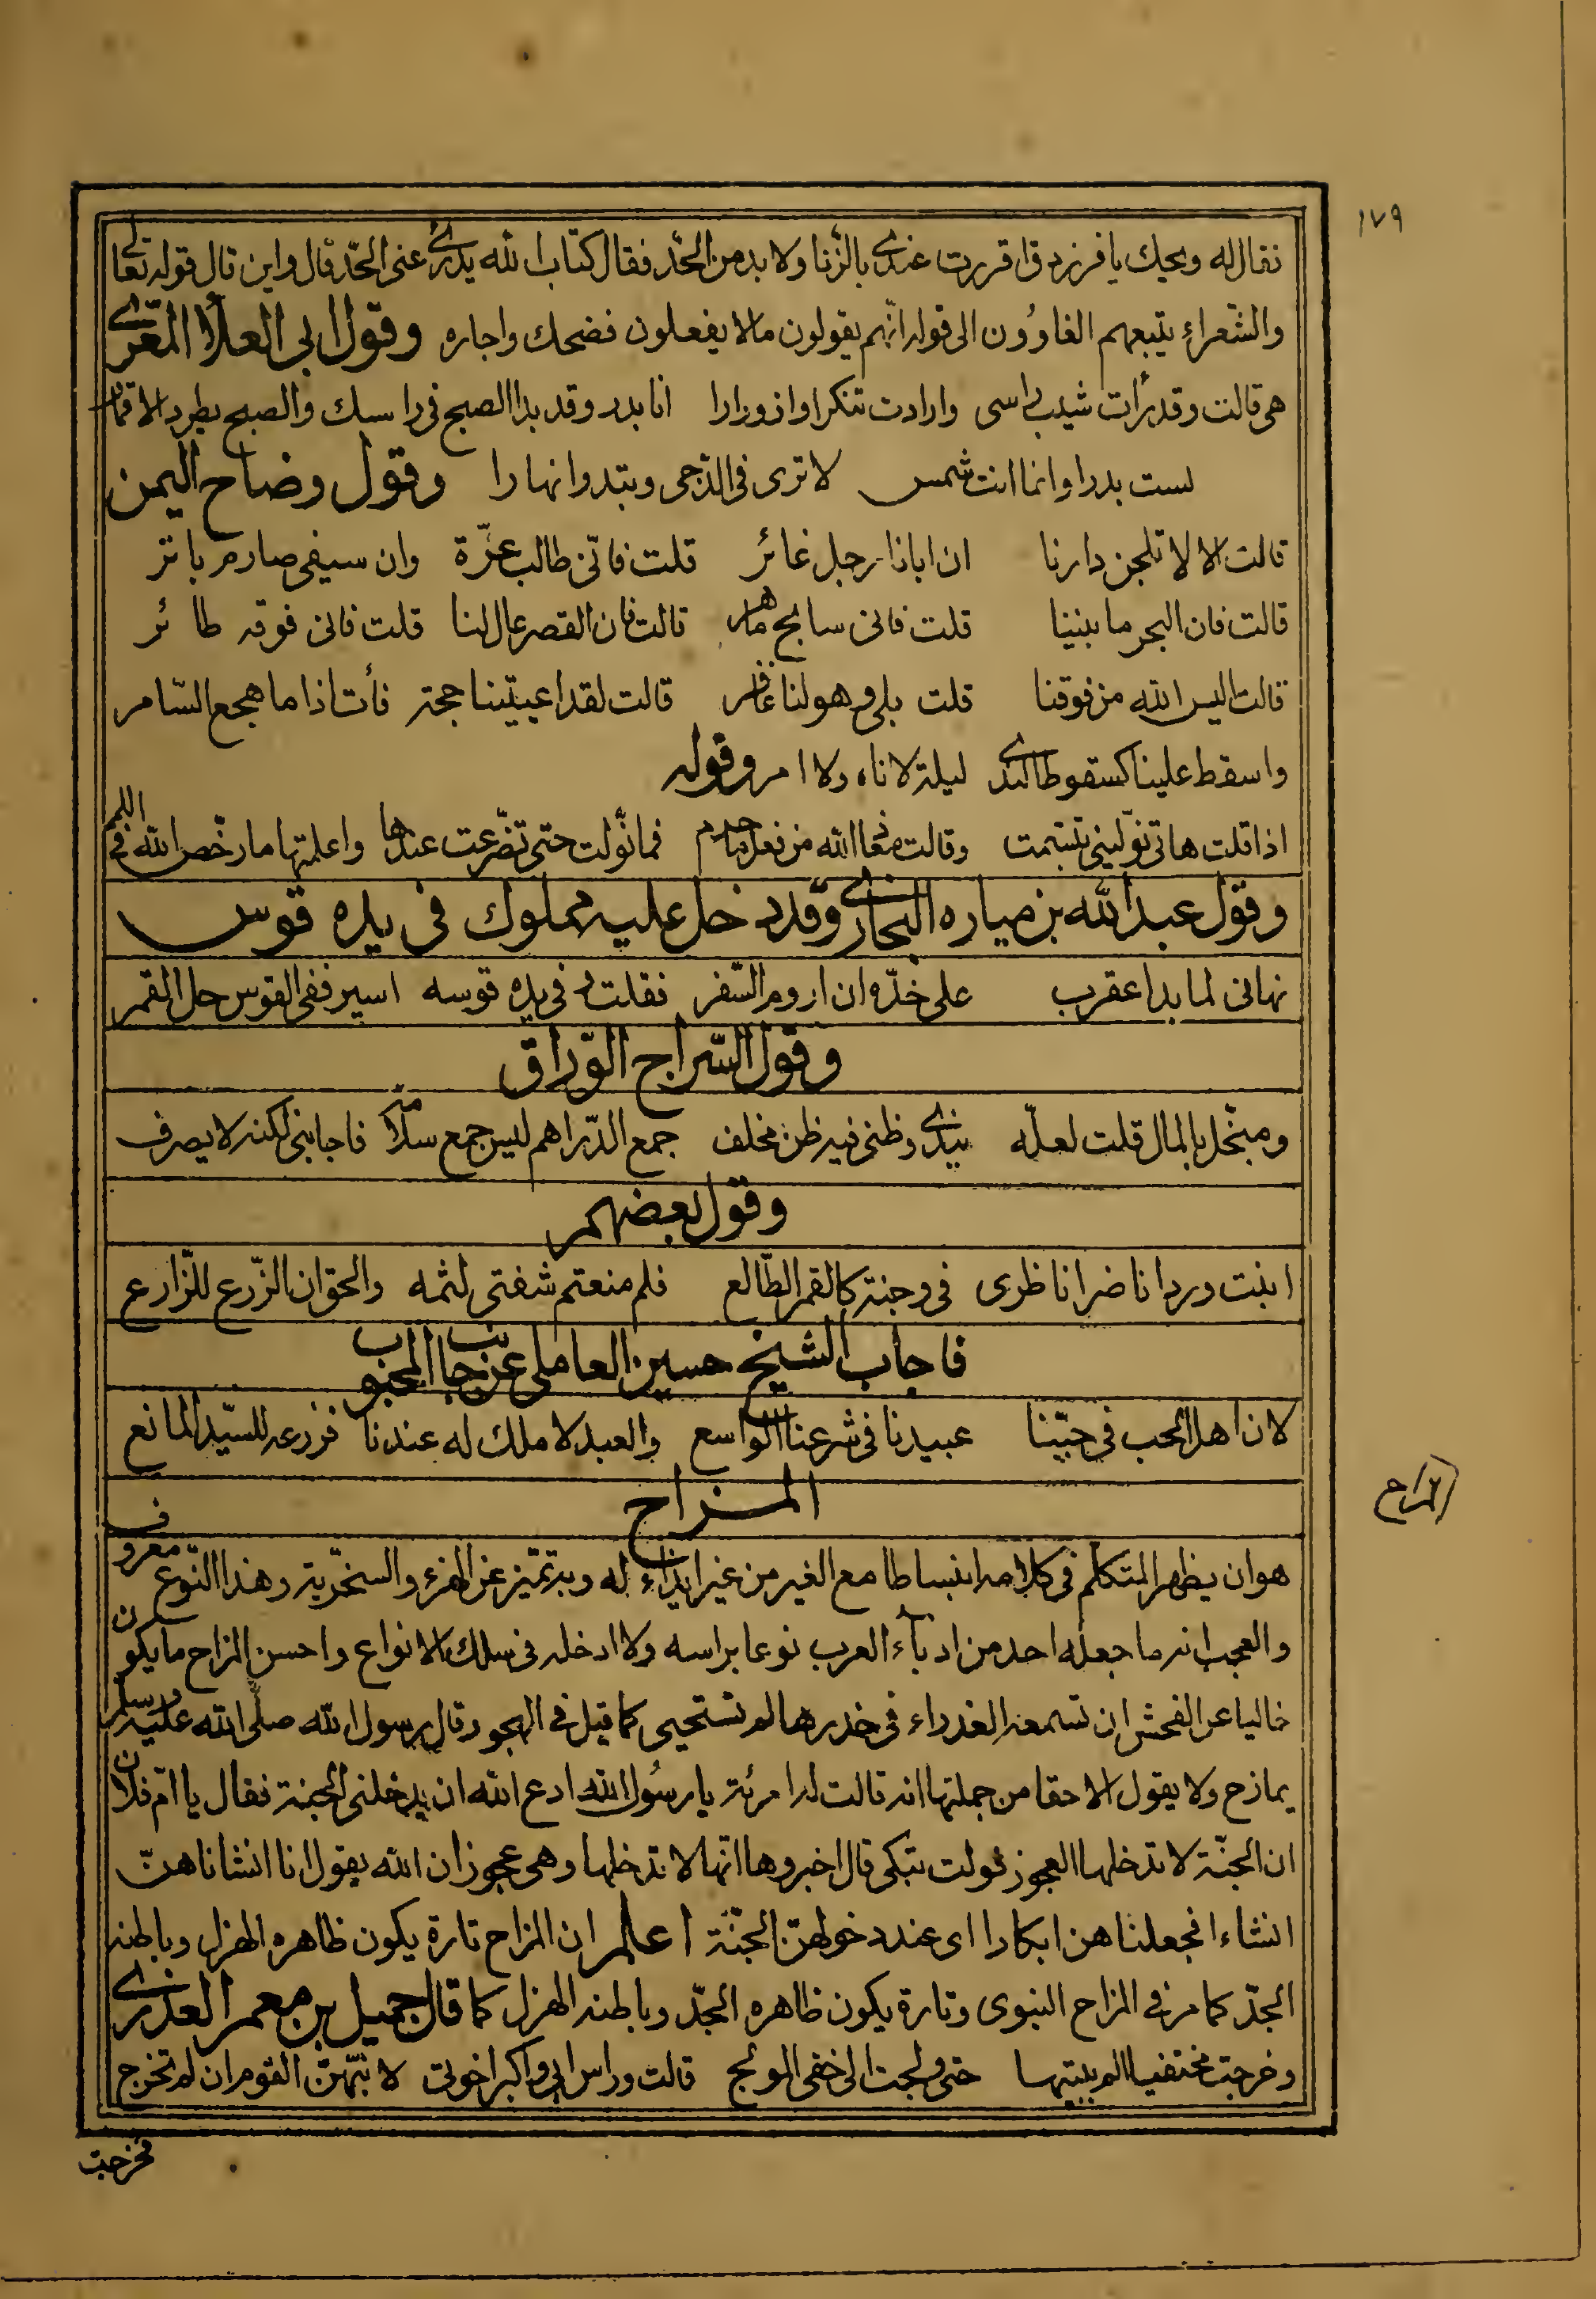 ١٧٩
فقال له ويحك يا فرزدق اقررت عندى بالزّنا ولا بد من الحّد فقال كتاب الله يدرئ عنى الحّد قال واين قال قوله تعالى
والشّعراء يتبعهم الغاوُون الى قوله انّهم يقولون ما لا يفعلون فضحك واجاره وقول ابى العلاُ المعّرى
هى قالت وقد رأت شيب راسى وارادت تنكرا وازورارا انا بدر وقد بدا الصبح فى راسك والصبح يطرد الاقمار
لست بدرا وانما انت شمس لا ترى فى الدّجى وبتدوا نهارا وقول وضاح اليمن
قالت الا لا تلجن دارنا ان ابانا رجل غائر قلت فانّى طالب عزّة وان سيفى صارم باتر
قالت فان البحر ما بيننا قلت فانى سابح ماهر قالت فان القصر عال لنا قلت فانى فوقه طائر
قالت اليس الله من فوقنا قلت بلى وهو لنا غافر قالت لقد اعييتنا حجة فأت اذا ما هجع السّامر
واسقط علينا كسقوط الندى ليلة لا ناه ولا امر وقوله
اذا قلت هاتى نوّلينى تبسّمت وقالت معاذ الله من فعل ما حرم فما نوّلت حتى تضّرعت عندها واعلمتها ما رخّص الله فى اللمم
وقول عبد الله بن مياره النجارى وقد دخل عليه مملوك فى يده قوس
نهانى لما بدا عقرب على خدّه ان اروم السّفر فقلت وفى يده قوسه اسير ففى القوس حل القمر
وقول السّراج الوّراق
ومبخّل بالمال قلت لعلّه يندى وظنى فيه ظن مخلف جمع الدّراهم ليس جمع سلامة فاجابنى لكنه لا يصرف
وقول بعضهم
انبت وردا ناضرا ناظرى فى وجنة كالقمر الطّالع فلم منعتم شفتى لثمه والحق ان الزّرع للّزارع
فاجاب الشيخ حسين العاملى عن جانب المحبوب
لان اهل الحب فى حبّنا عبيدنا فى شرعنا الواسع والعبد لا ملك له عندنا فزرعه للسيّد المانع
المزاح
المزاح
هو ان يظهر المتكلّم فى كلامه انبساطا مع الغير من غير ايذاء له وبه تميّز عن الهزء والسخّرية وهذا النّوع معروف
والعجب انه ما جعله احد من ادبآء العرب نوعا براسه ولا ادخله فى سلك الانواع واحسن المزاح ما يكون
خاليا عن الفحش ان تسمعه العذراء فى خدرها لم تستحيى كما قيل فى الهجو وقال رسول الله صلّى الله عليه وسلم
يمازح ولا يقول الا حقا من جملتها انه قالت له امرئة يا رسُول الله ادع الله ان يدخلنى الجنة فقال يا امّ فلان
ان الجنّة لا تدخلها العجوز فولت تبكى قال اخبروها انّها لا تدخلها وهى عجوز ان الله يقول انا انشاناهنّ
انشاء فجعلناهن ابكارا اى عند دخولهنّ الجنّة اعلم ان المزاح تارة يكون ظاهره الهزل وباطنه
الجدّ كما مر فى المزاح النبوى وتارة يكون ظاهره الجدّ وباطنه الهزل كما قال جميل بن معمر العذرى
وخرجت مختفيا الو بيتها حتى ولجت الى خفى المولج قالت وراس ابى واكبر اخوتى لا نبّهنّ القوم ان لم تخرج
فخرجت